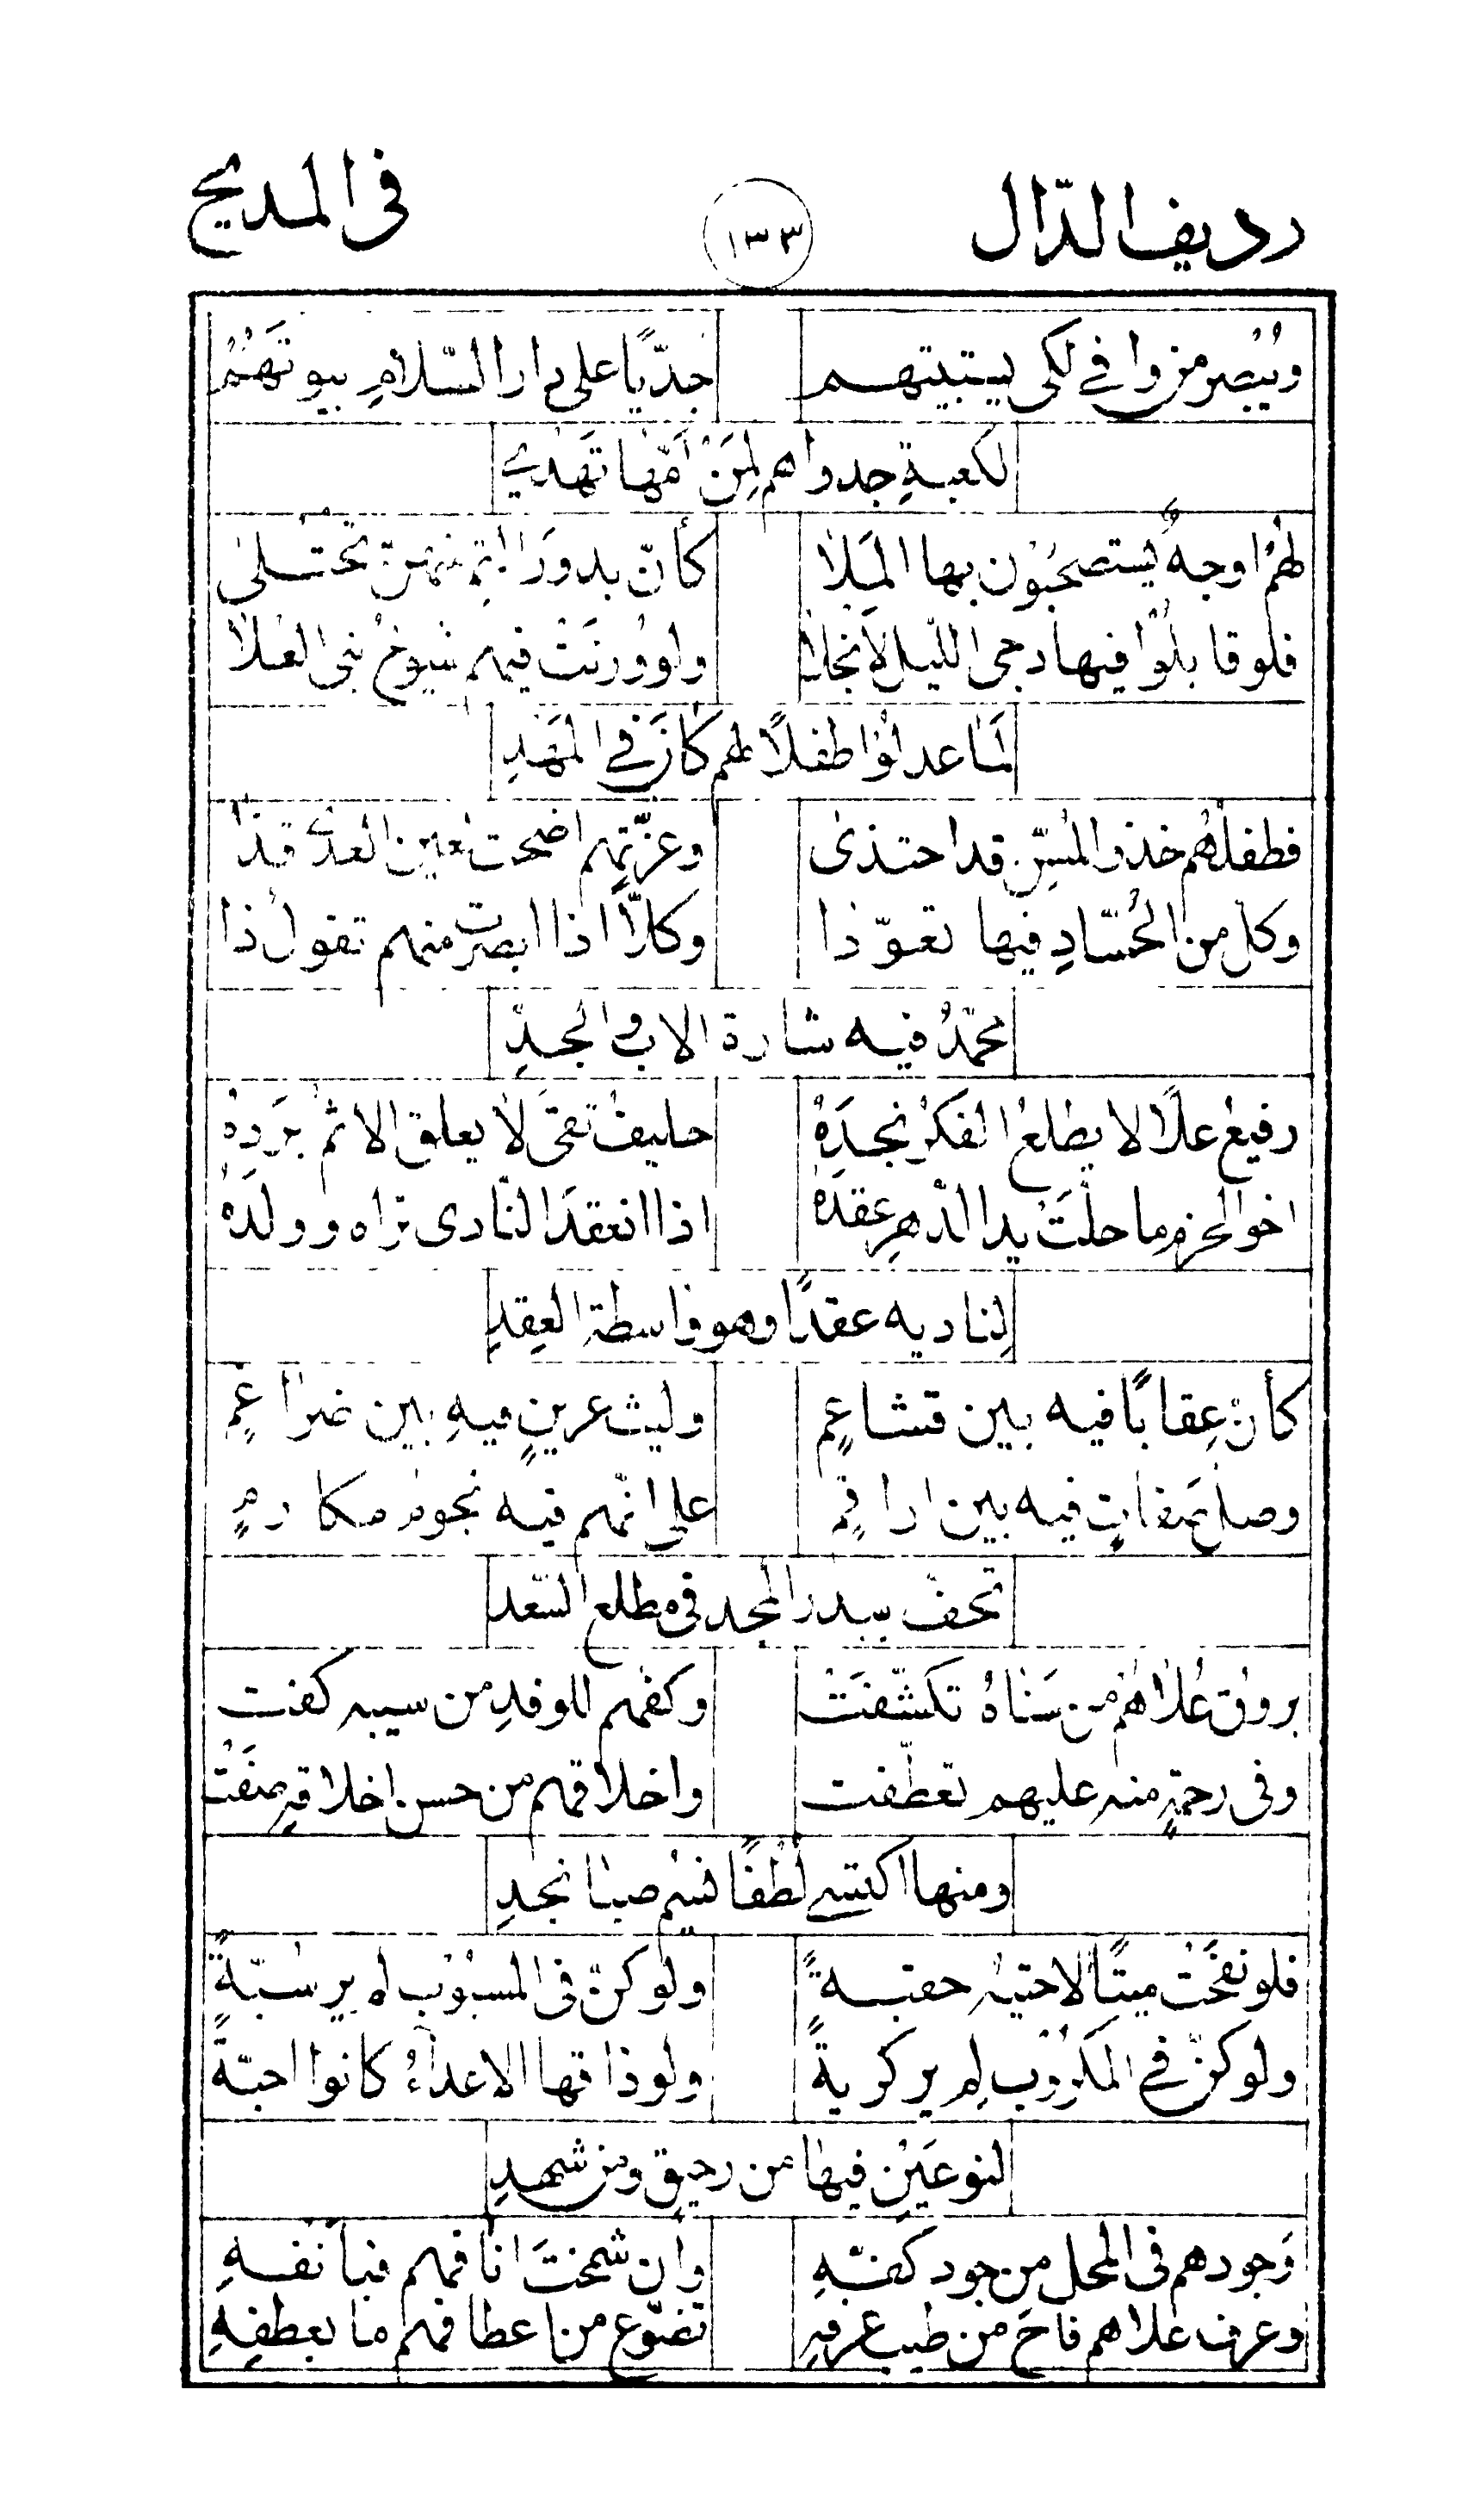 رديف الدّال ١٣٣ فى المديح
ويُبصر من وافى لكى يستبيتهم جدّيًا على دار السّلامِ بيوتَهُمْ
لكعبةِ جدواهم لِمَنْ أمّها تَهْدِي
لهُمْ اوجهٌ يستصحبُون بها المَلا كأنّ بدورَ التِمّ منهنّ تُجتلى
فلو قابلُوا فيها دجى اللّيل لانجلا ولو وُزنَتْ فيهم شيوخُ بنى العُلا
لمَا عدلُوا طفلاً لهم كانَ في المَهْدِ
فطفلُهُم حذو المُسِنّ قد احتذى وعزّتهم اضحت لعين العدى قذا
وكلٌ من الحُسّادِ فيها تعوّذا وكلاًّ اذا ابصرت منهم تقول ذا
محمّدُ فيه شارة الاب والجدِّ
رفيعُ علاً لا يطلعُ الفكرُ نجدَهُ حليفُ تقىً لا يعلق الاثمُ بَردَهُ
اخو الحزم ما حلّت يد الدّهرِ عقدَهُ اذا انعقدَ النّادى تراه وولدَهُ
لِناديه عقدًا وهو واسطة العِقدِ
كأنّ عِقابًا فيه بين قشاعمٍ وليث عرينٍ فيهِ بين ضراغمٍ
وصلّ صفاتٍ فيه بين اراقمٍ على انّهم فيه نجومُ مكارمٍ
تحفّ ببدر المجد فى مطلع السّعد
بروق عُلاهُم من سَناهُ تكشّفَتْ وكفّهم للوفدِ من سيبه كفت
وفى رحمةٍ منه عليهم تعطّفت واخلاقهم من حسن اخلاقهِ صفَتْ
ومنها اكتسى لُطْفًا نسيم صبا نجدِ
فلو نفحَتْ ميتًا لاحيته حقبةً ولو كنّ فى المسبُوب لم ير سبّةً
ولو كنّ في المكرُوب لم ير كربةً ولو ذاقها الاعداءُ كانوا احبّةً
لنوعَيْنِ فيها من رحيقٍ ومن شهدِ
وَجودهم فى المحل من جود كفّهِ وان شمخَتْ انافهم فبأنفهِ
وعرف علاهم فاحَ من طيب عرفهِ تضوّع من اعطافهم ما بعطفِهِ